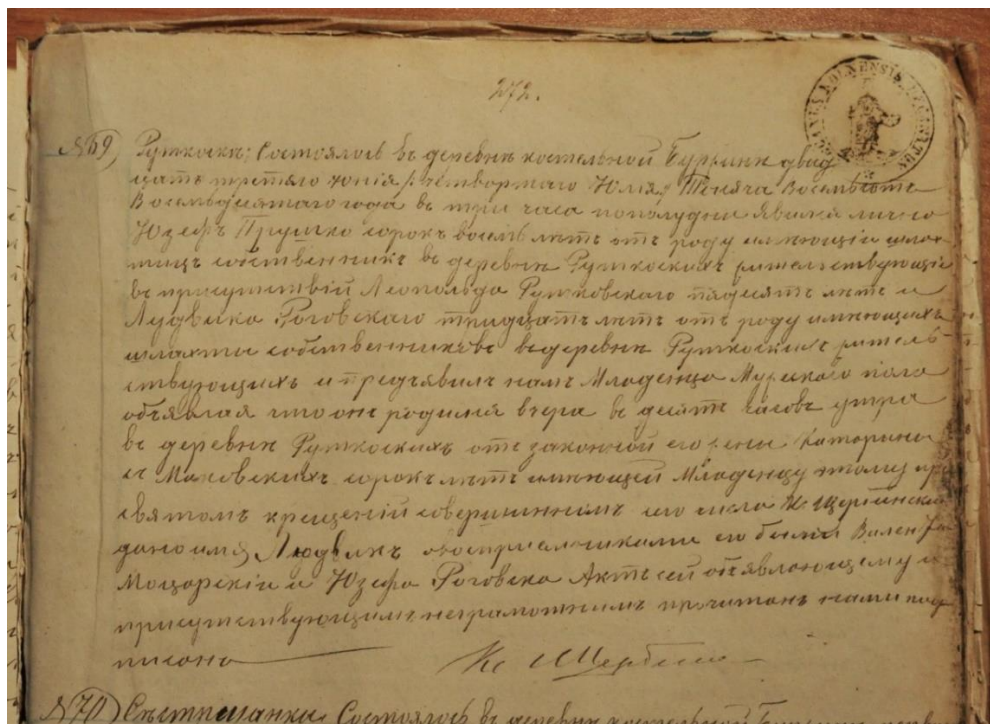 272.
№ 69) Руткоски; Состоялось въ деревнѣ костельной Бурзинѣ двад
цать третяго Юнія /: четвортаго Юля:/ Тысяча Восемьсотъ
Восемьдесятаго года въ три часа пополудни явился лично
Юзефъ Прушко сорокъ восемь лѣтъ отъ роду имеющій шлях
тицъ собственникъ въ деревнѣ Руткоскихъ жительствующій
въ присутствій Леопольда Рутковскаго пядесятъ лѣтъ и
Лудвика Роговскаго тридцать лѣтъ отъ роду имеющихъ
шляхты собственниковъ въ деревнѣ Руткоскихъ житель
ствующихъ и предъявилъ намъ Младенца Мужескаго пола
объявляя что онъ родился вчера въ десять часовъ утра
въ деревнѣ Руткоскихъ отъ законной его жены Катарины
съ Маковскихъ сорокъ лѣтъ имеющей Младенцу этому при
святомъ крещеній совершинномъ его числа Кс Щербинскимъ
дано имя Людвикъ а воспріемниками его были
Моцарскій и Юзефа Роговска Актъ сей объявляющему и
присутствующимъ неграмотнимъ прочитанъ нами под
писано
Кс
№ 70) Состоялось въ деревнѣ костельной